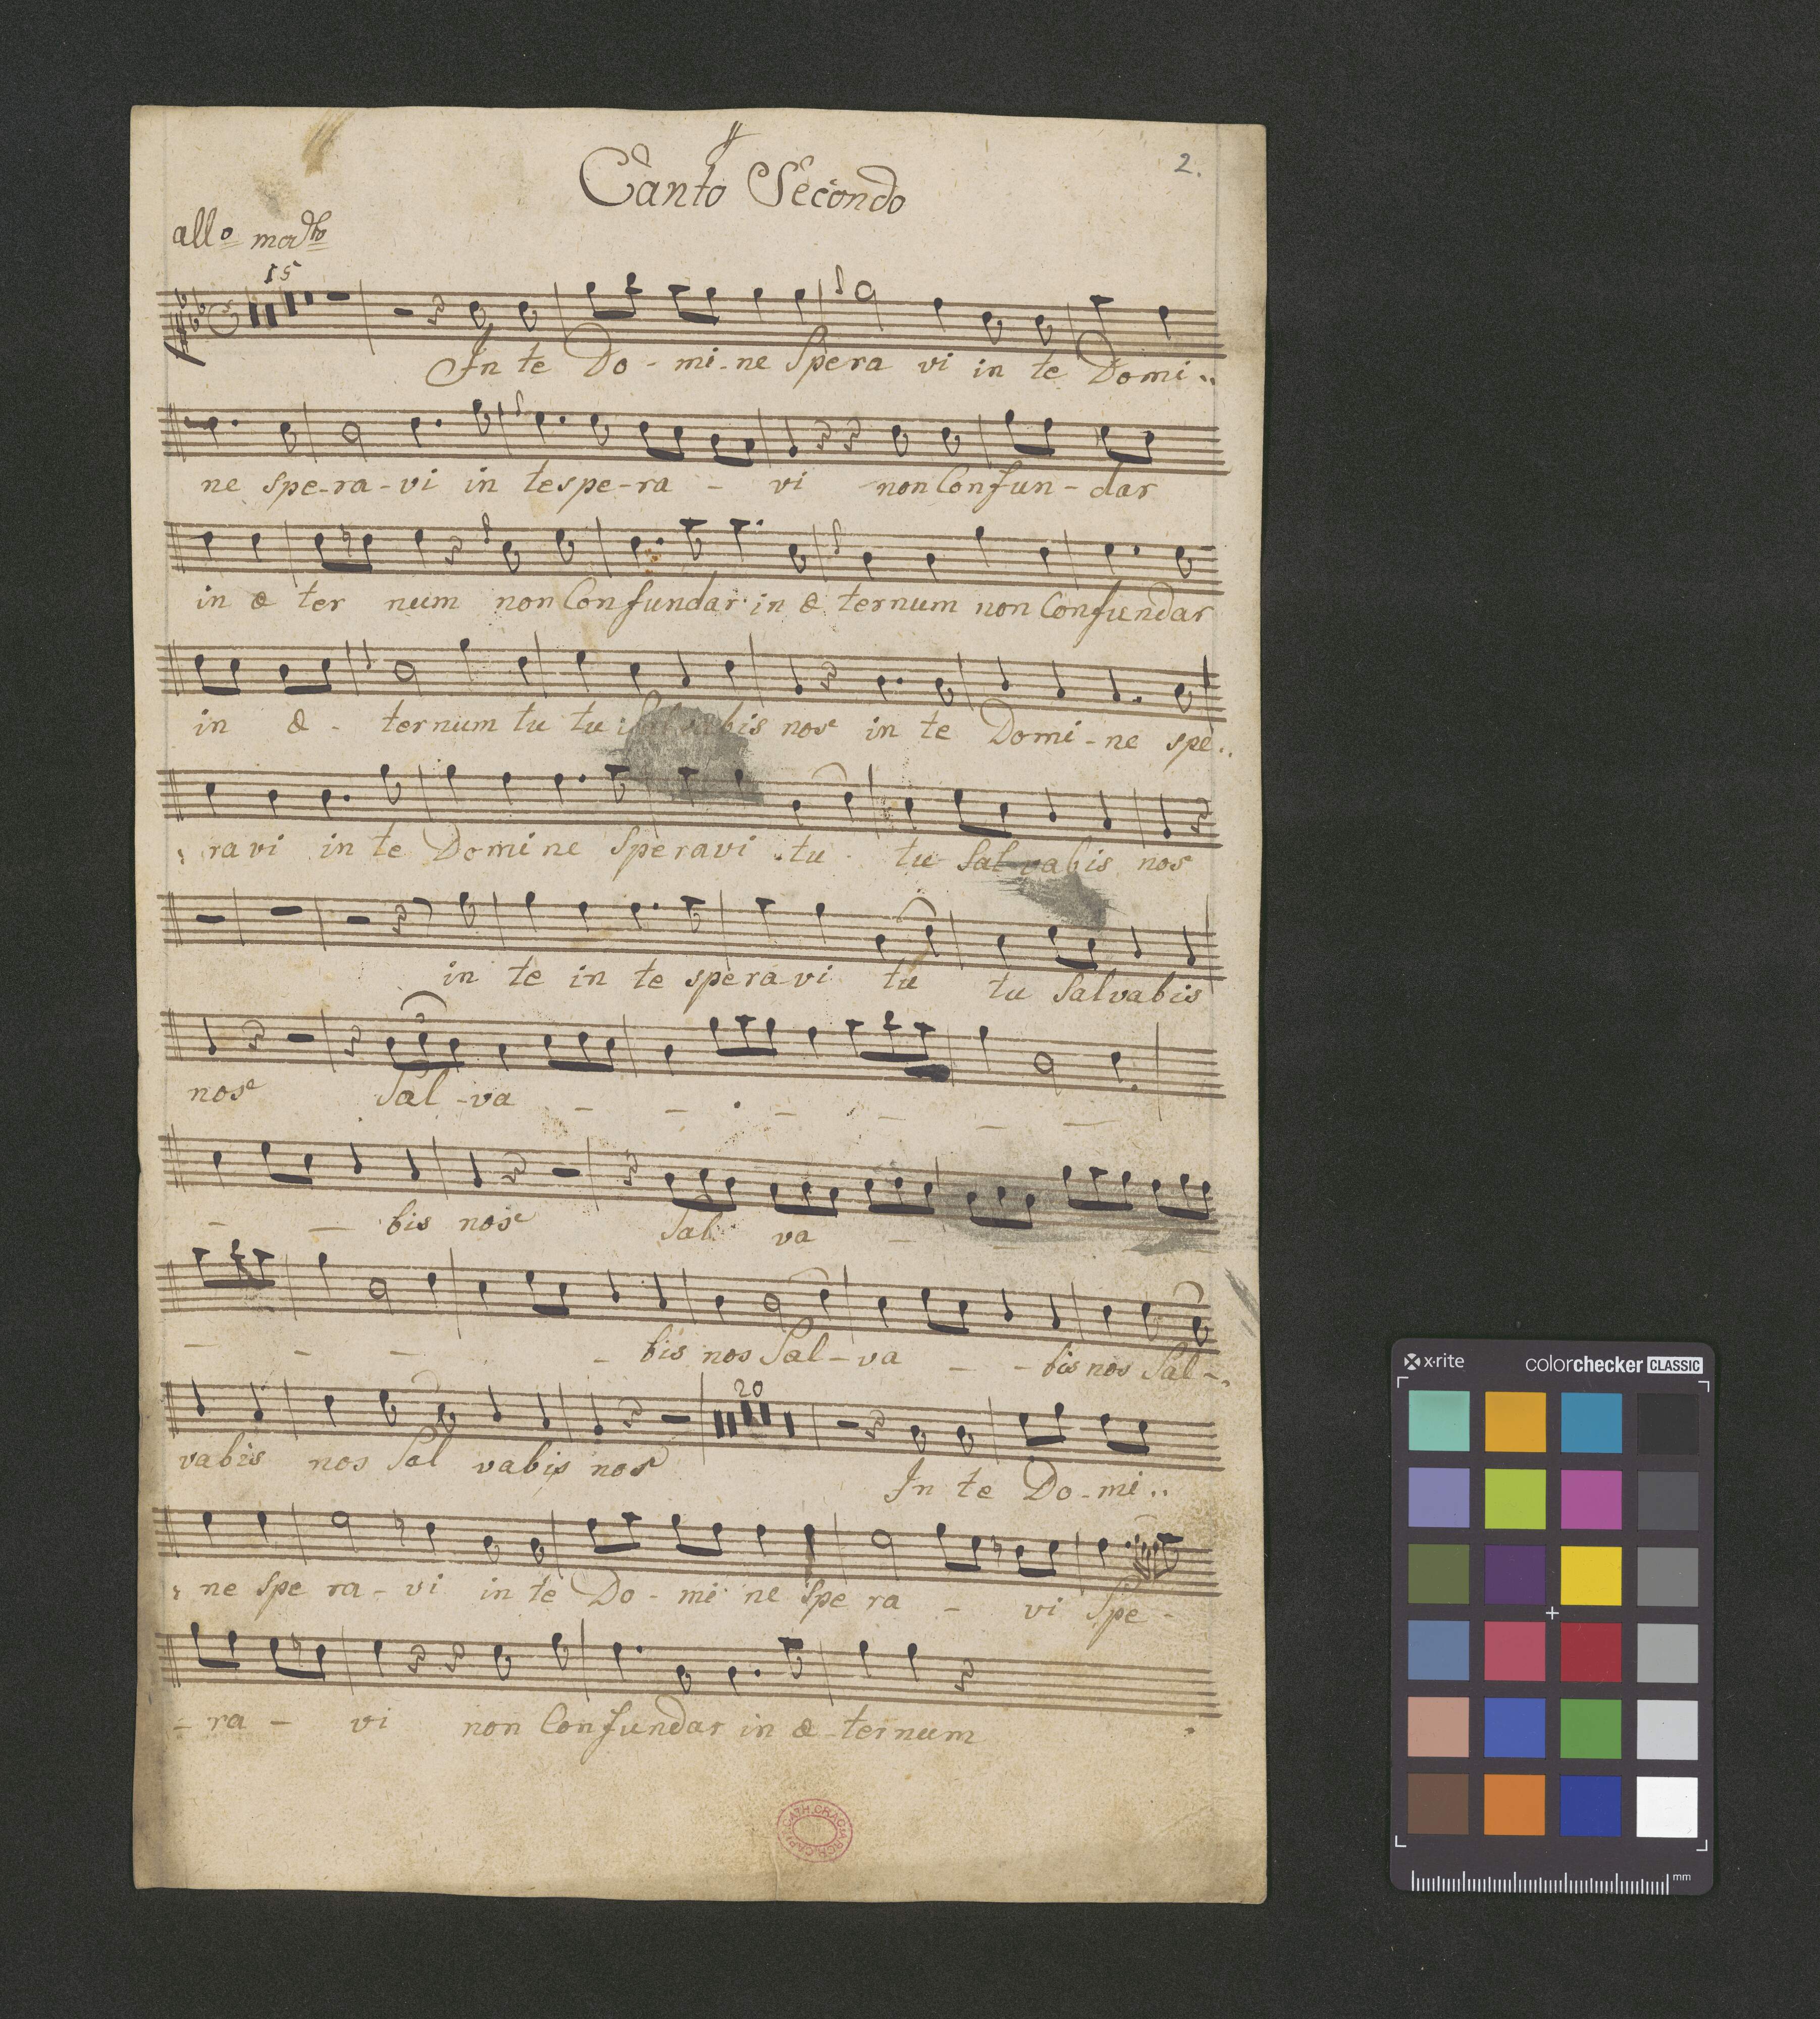 2.
Canto Secondo
allo modto
15
In te Do - mi - ne Spera vi in te Domi..
ne spe-ra-vi in te spe-ra - vi non Confun - dar
in æ ter num non Confundar in æ ternum non Confundar
in æ - ternum tu tu salvabis nos in te Domi - ne spe..
ravi in te Domi ne Speravi tu tu Salvabis nos
in te in te spera-vi tu tu Salvabis
nos Sal - va - - - - - -
- - bis nos Sal va - -
- - - - bis nos Sal - va - - bis nos Sal -
20
vabis nos Sal vabis nos In te Do - mi..
ne spe ra - vi in te Do - mi ne spe ra - vi Spe -
- ra - vi non Confundar in æ - ternum
x-rite colorchecker CLASSIC
mm